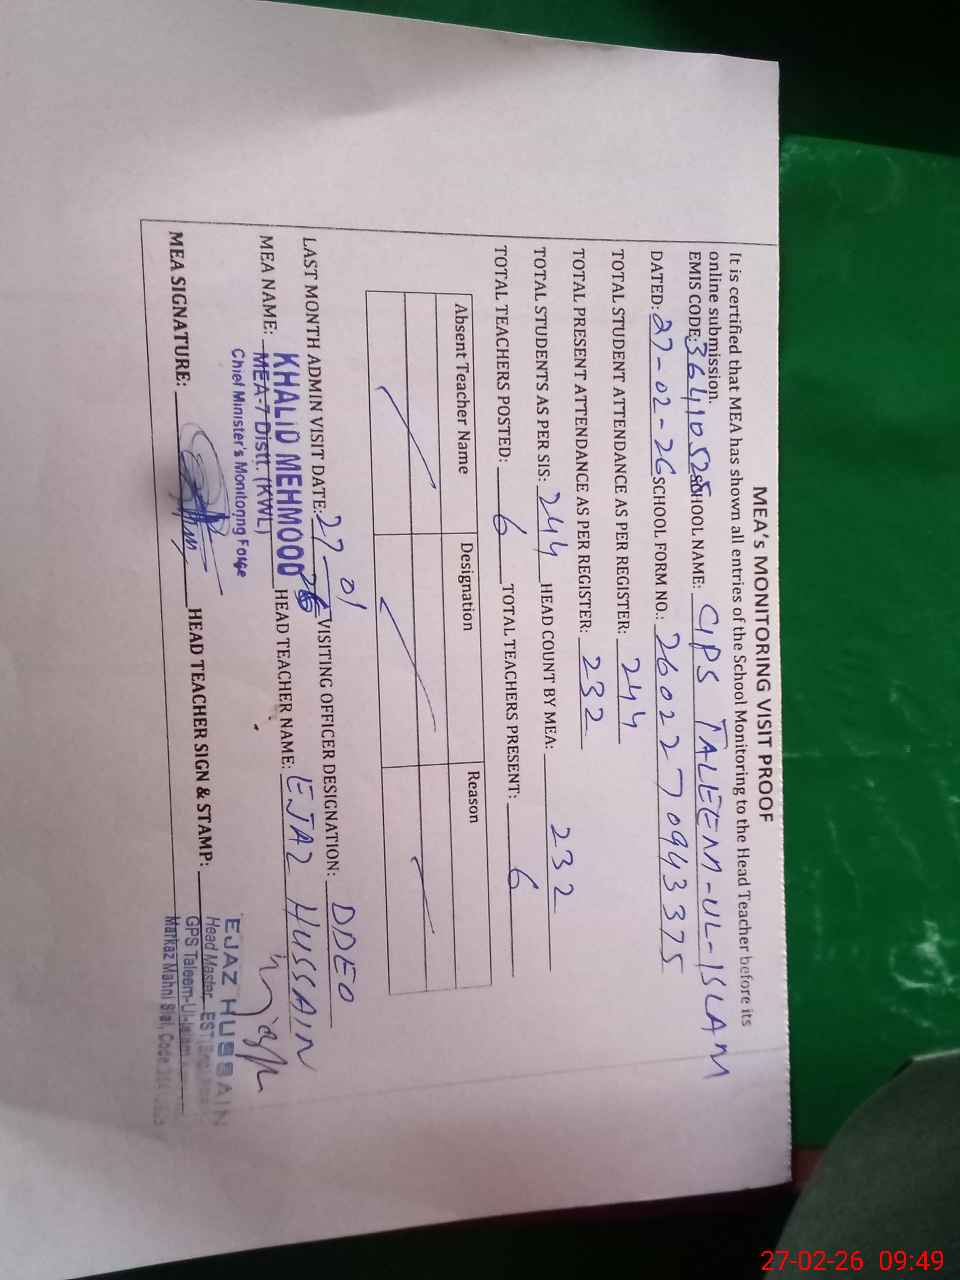 MEA's MONITORING VISIT PROOF
It is certified that MEA has shown all entries of the School Monitoring to the Head Teacher before its
online submission.
EMIS CODE: 36410525 SCHOOL NAME: GPS TALEEM-UL-ISLAM
DATED: 27-02-26 SCHOOL FORM NO.: 26022770943375
TOTAL STUDENT ATTENDANCE AS PER REGISTER: 244
TOTAL PRESENT ATTENDANCE AS PER REGISTER: 232
TOTAL STUDENTS AS PER SIS: 244 HEAD COUNT BY MEA: 232
TOTAL TEACHERS POSTED: 6 TOTAL TEACHERS PRESENT: 6
Absent Teacher Name Designation Reason
LAST MONTH ADMIN VISIT DATE: 27-01-26 VISITING OFFICER DESIGNATION: DDEO
MEA NAME: KHALID MEHMOOD HEAD TEACHER NAME: EJAZ HUSSAIN
MEA-7 Distt. (KWL)
Chief Minister's Monitoring Force
MEA SIGNATURE: HEAD TEACHER SIGN & STAMP:
EJAZ HUSSAIN
Head Master, EST
GPS Taleem-Ul-Islam
Markaz Mahni Sial, Code
27-02-26 09:49